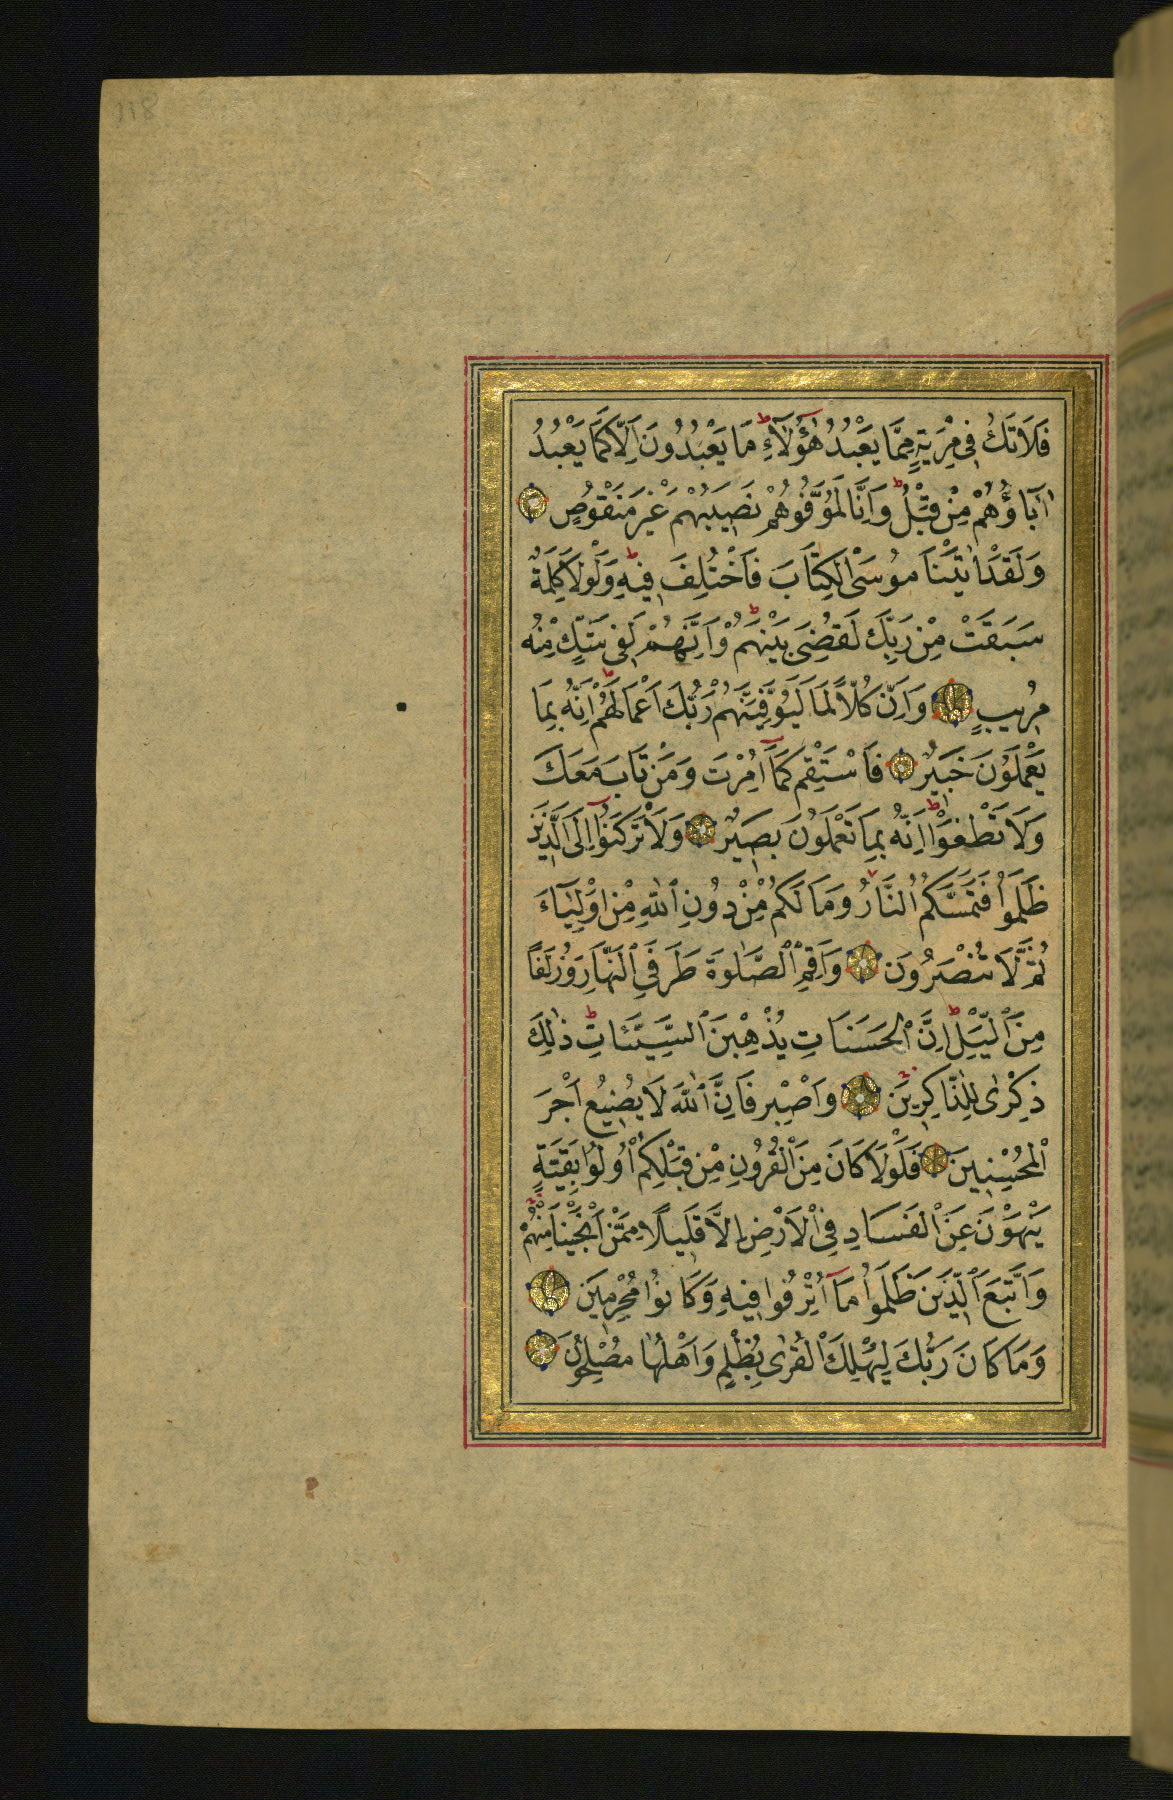 118
فَلَا تَكُ فِى مِرْيَةٍ مِمَّا يَعْبُدُ هٰٓؤُلَٓاءِۜ مَا يَعْبُدُونَ اِلَّا كَمَا يَعْبُدُ
اٰبَٓاؤُهُمْ مِنْ قَبْلُۜ وَاِنَّا لَمُوَفُّوهُمْ نَصِيبَهُمْ غَيْرَ مَنْقُوصٍ
وَلَقَدْ اٰتَيْنَا مُوسَى الْكِتَابَ فَاخْتُلِفَ فِيهِۜ وَلَوْلَا كَلِمَةٌ
سَبَقَتْ مِنْ رَبِّكَ لَقُضِىَ بَيْنَهُمْۜ وَاِنَّهُمْ لَفِى شَكٍّ مِنْهُ
مُرِيبٍ وَاِنَّ كُلًّا لَمَا لَيُوَفِّيَنَّهُمْ رَبُّكَ اَعْمَالَهُمْۜ اِنَّهُ بِمَا
يَعْمَلُونَ خَبِيرٌ فَاسْتَقِمْ كَمَٓا اُمِرْتَ وَمَنْ تَابَ مَعَكَ
وَلَا تَطْغَوْاۜ اِنَّهُ بِمَا تَعْمَلُونَ بَصِيرٌ وَلَا تَرْكَنُٓوا اِلَى الَّذِينَ
ظَلَمُوا فَتَمَسَّكُمُ النَّارُ وَمَا لَكُمْ مِنْ دُونِ اللّٰهِ مِنْ اَوْلِيَٓاءَ
ثُمَّ لَا تُنْصَرُونَ وَاَقِمِ الصَّلٰوةَ طَرَفَىِ النَّهَارِ وَزُلَفًا
مِنَ الَّيْلِۜ اِنَّ الْحَسَنَاتِ يُذْهِبْنَ السَّيِّئَاتِۜ ذٰلِكَ
ذِكْرٰى لِلذَّاكِرِينَ وَاصْبِرْ فَاِنَّ اللّٰهَ لَا يُضِيعُ اَجْرَ
الْمُحْسِنِينَ فَلَوْلَا كَانَ مِنَ الْقُرُونِ مِنْ قَبْلِكُمْ اُولُوا بَقِيَّةٍ
يَنْهَوْنَ عَنِ الْفَسَادِ فِى الْاَرْضِ اِلَّا قَلِيلًا مِمَّنْ اَنْجَيْنَا مِنْهُمْ
وَاتَّبَعَ الَّذِينَ ظَلَمُوا مَٓا اُتْرِفُوا فِيهِ وَكَانُوا مُجْرِمِينَ
وَمَا كَانَ رَبُّكَ لِيُهْلِكَ الْقُرٰى بِظُلْمٍ وَاَهْلُهَا مُصْلِحُونَ